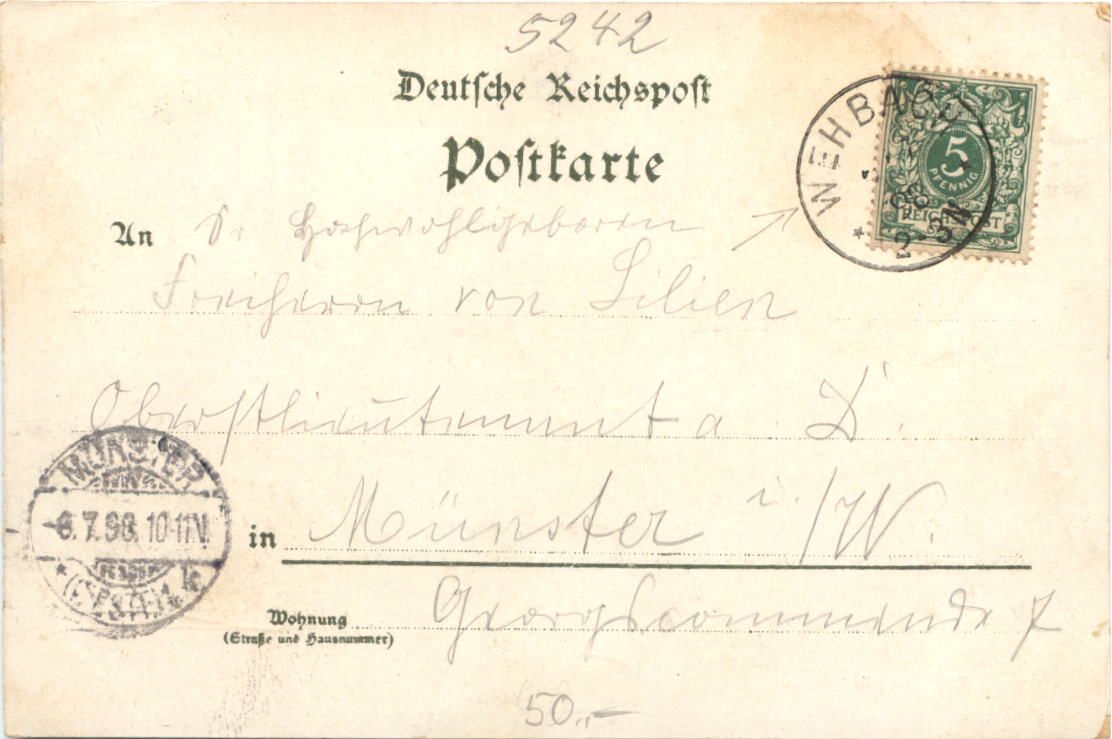 5242
Deutsche Reichspost
Postkarte
An Sr Hochwohlgeboren
Freiherrn von Lilien
Oberstlieutenant a. D.
in Münster i./W.
Wohnung Georgscommende 7
(Straße und Hausnummer)
50,-
WEHBACH
5
PFENNIG
REICHSPOST
MÜNSTER
6.7.98. 10-11N.